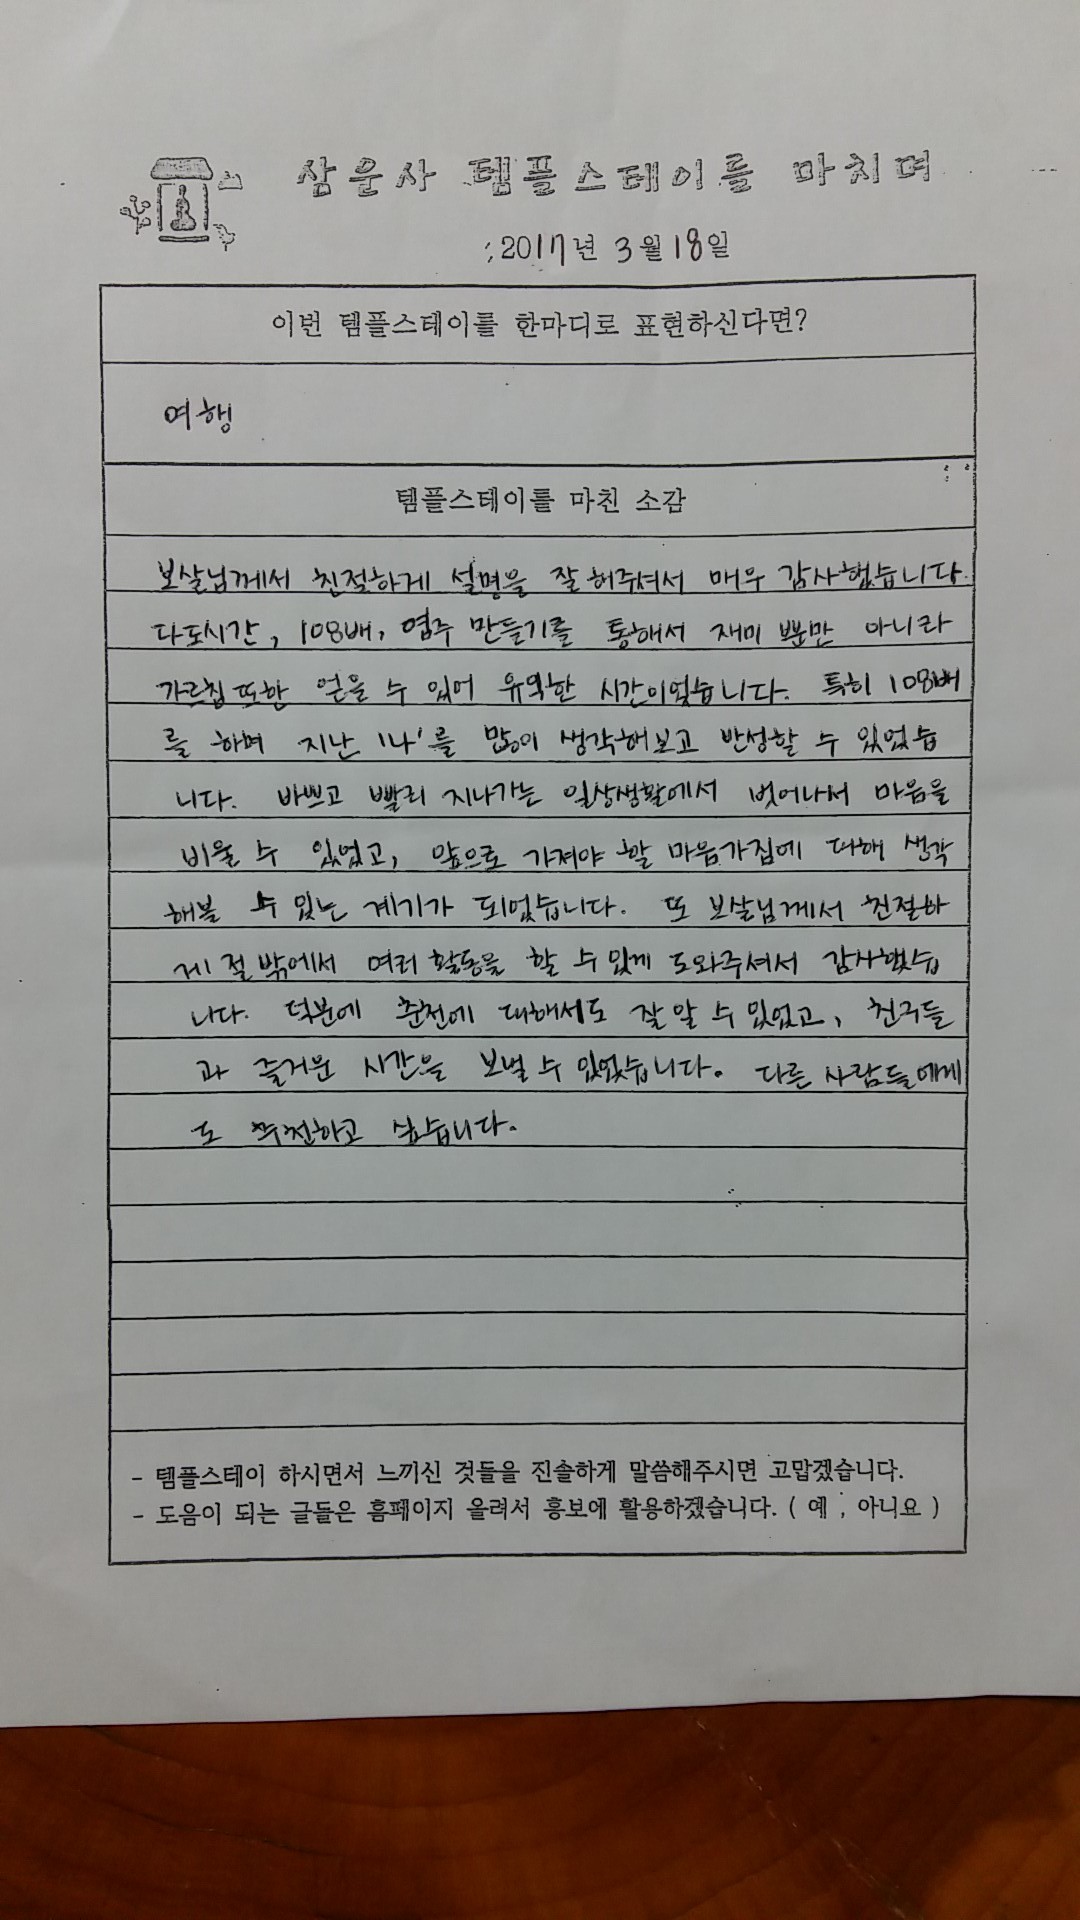 삼운사 템플스테이를 마치며
2017년 3월 18일
이번 템플스테이를 한마디로 표현하신다면?
여행
템플스테이를 마친 소감
보살님께서 친절하게 설명을 잘 해주셔서 매우 감사했습니다.
다도시간, 108배, 염주 만들기를 통해서 재미 뿐만 아니라
가르침 또한 얻을 수 있어 유익한 시간이었습니다. 특히 108배
를 하며 지난 '나'를 많이 생각해보고 반성할 수 있었습
니다. 바쁘고 빨리 지나가는 일상생활에서 벗어나서 마음을
비울 수 있었고, 앞으로 가져야 할 마음가짐에 대해 생각
해볼 수 있는 계기가 되었습니다. 또 보살님께서 친절하
게 절 밖에서 여러 활동을 할 수 있게 도와주셔서 감사했습
니다. 덕분에 춘천에 대해서도 잘 알 수 있었고, 친구들
과 즐거운 시간을 보낼 수 있었습니다. 다른 사람들에게
도 추천하고 싶습니다.
- 템플스테이 하시면서 느끼신 것들을 진솔하게 말씀해주시면 고맙겠습니다.
- 도움이 되는 글들은 홈페이지 올려서 홍보에 활용하겠습니다. ( 예 , 아니요 )